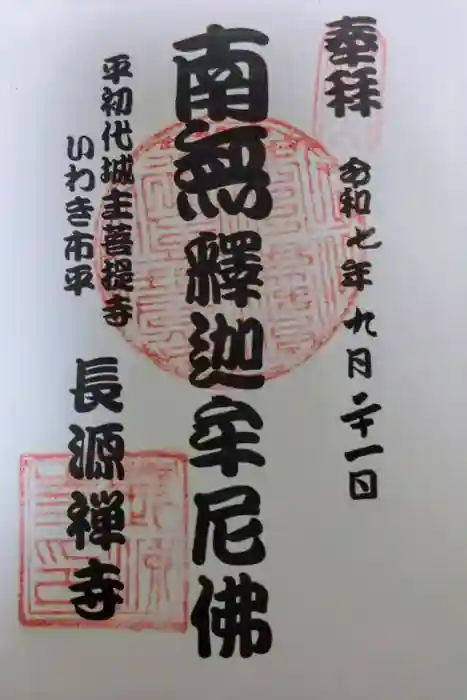 奉拝
令和七年九月二十一日
南無釋迦牟尼佛
平初代城主菩提寺
いわき市平
長源禅寺